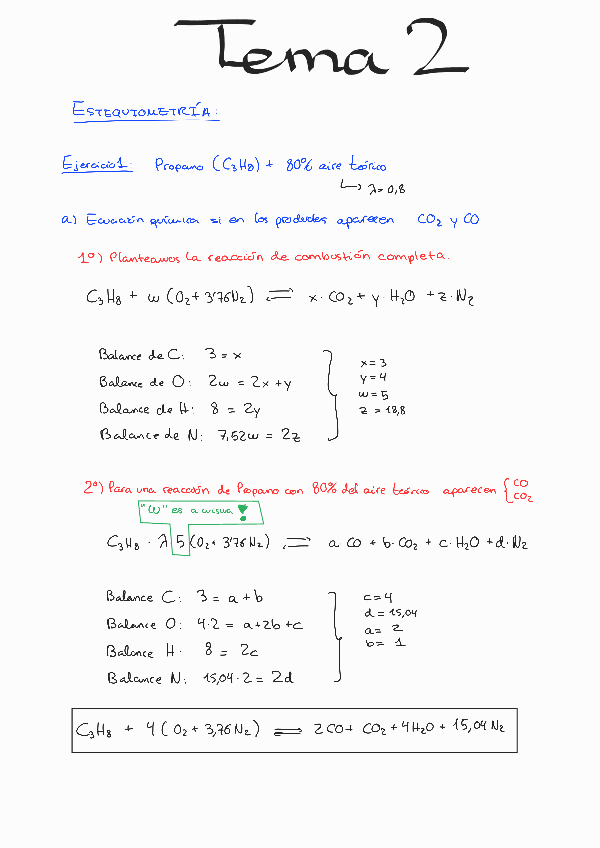 Tema 2
ESTEQUIOMETRÍA:
Ejercicio 1: Propano (C3H8) + 80% aire teórico
↳ λ=0,8
a) Ecuación química si en los productos aparecen CO2 y CO
1º) Planteamos la reacción de combustión completa.
C3H8 + w (O2 + 3'76N2) ⇌ x·CO2 + y·H2O + z·N2
Balance de C: 3 = x
Balance de O: 2w = 2x + y
Balance de H: 8 = 2y
Balance de N: 7,52w = 2z
x=3
y=4
w=5
z = 18,8
2º) Para una reacción de Propano con 80% del aire teórico aparecen { CO
CO2
"W" es la misma !
C3H8 · λ 5 (O2 + 3'76N2) ⇌ a CO + b·CO2 + c·H2O + d·N2
Balance C: 3 = a+b
Balance O: 4·2 = a+2b+c
Balance H: 8 = 2c
Balance N: 15,04·2 = 2d
c=4
d=15,04
a= 2
b= 1
C3H8 + 4 (O2 + 3,76N2) ⇌ 2CO + CO2 + 4H2O + 15,04 N2